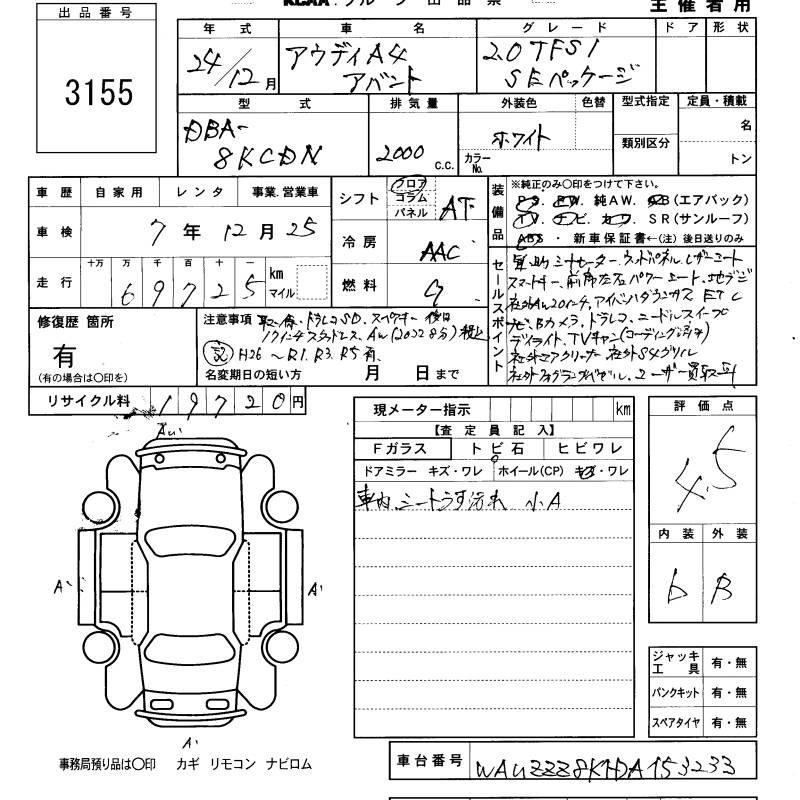 出品番号
3155
主催者用
年式 車名 グレード ドア 形状
24/12月 アウディA4 アバント 2.0TFSI SEパッケージ
型式 排気量 外装色 色替 型式指定 定員・積載
DBA-8KCDN 2000 C.C. ホワイト カラーNo. 類別区分 名 トン
車歴 自家用 レンタ 事業.営業車
車検 7年12月25
走行 十万 万 千 百 十 一 69725 km マイル
シフト フロア コラム パネル AT
冷房 AAC
燃料
装備品 ※純正のみ○印をつけて下さい。
PS. PW. 純AW. AB(エアバック)
TV. ナビ. カワ. SR(サンルーフ)
ABS ・ 新車保証書←(注) 後日送りのみ
セールスポイント
スマートキー, 前席左右パワーシート, 地デジ
社外AW20インチ, ETC
ナビ, Bカメラ, ドラレコ, ニードルスイープ
デイライト, TVキャン(コーディング済み)
修復歴 箇所
有
(有の場合は○印を)
注意事項 取説, 保, ドラレコSD, スペアキー 後日
17インチスタッドレス, AW(2022 8分)積込
記 H26 ~ R1. R3. R5 有
名変期日の短い方 月 日まで
リサイクル料 19720円
現メーター指示 km
【査定員記入】
Fガラス トビ石 ヒビワレ
ドアミラー キズ・ワレ ホイール(CP) キズ・ワレ
車内, シートうす汚れ 小A
評価点
4.5
内装 外装
b B
A
A
A
A
ジャッキ工具 有・無
パンクキット 有・無
スペアタイヤ 有・無
事務局預り品は○印 カギ リモコン ナビロム
車台番号 WAUZZZ8K1DA153233